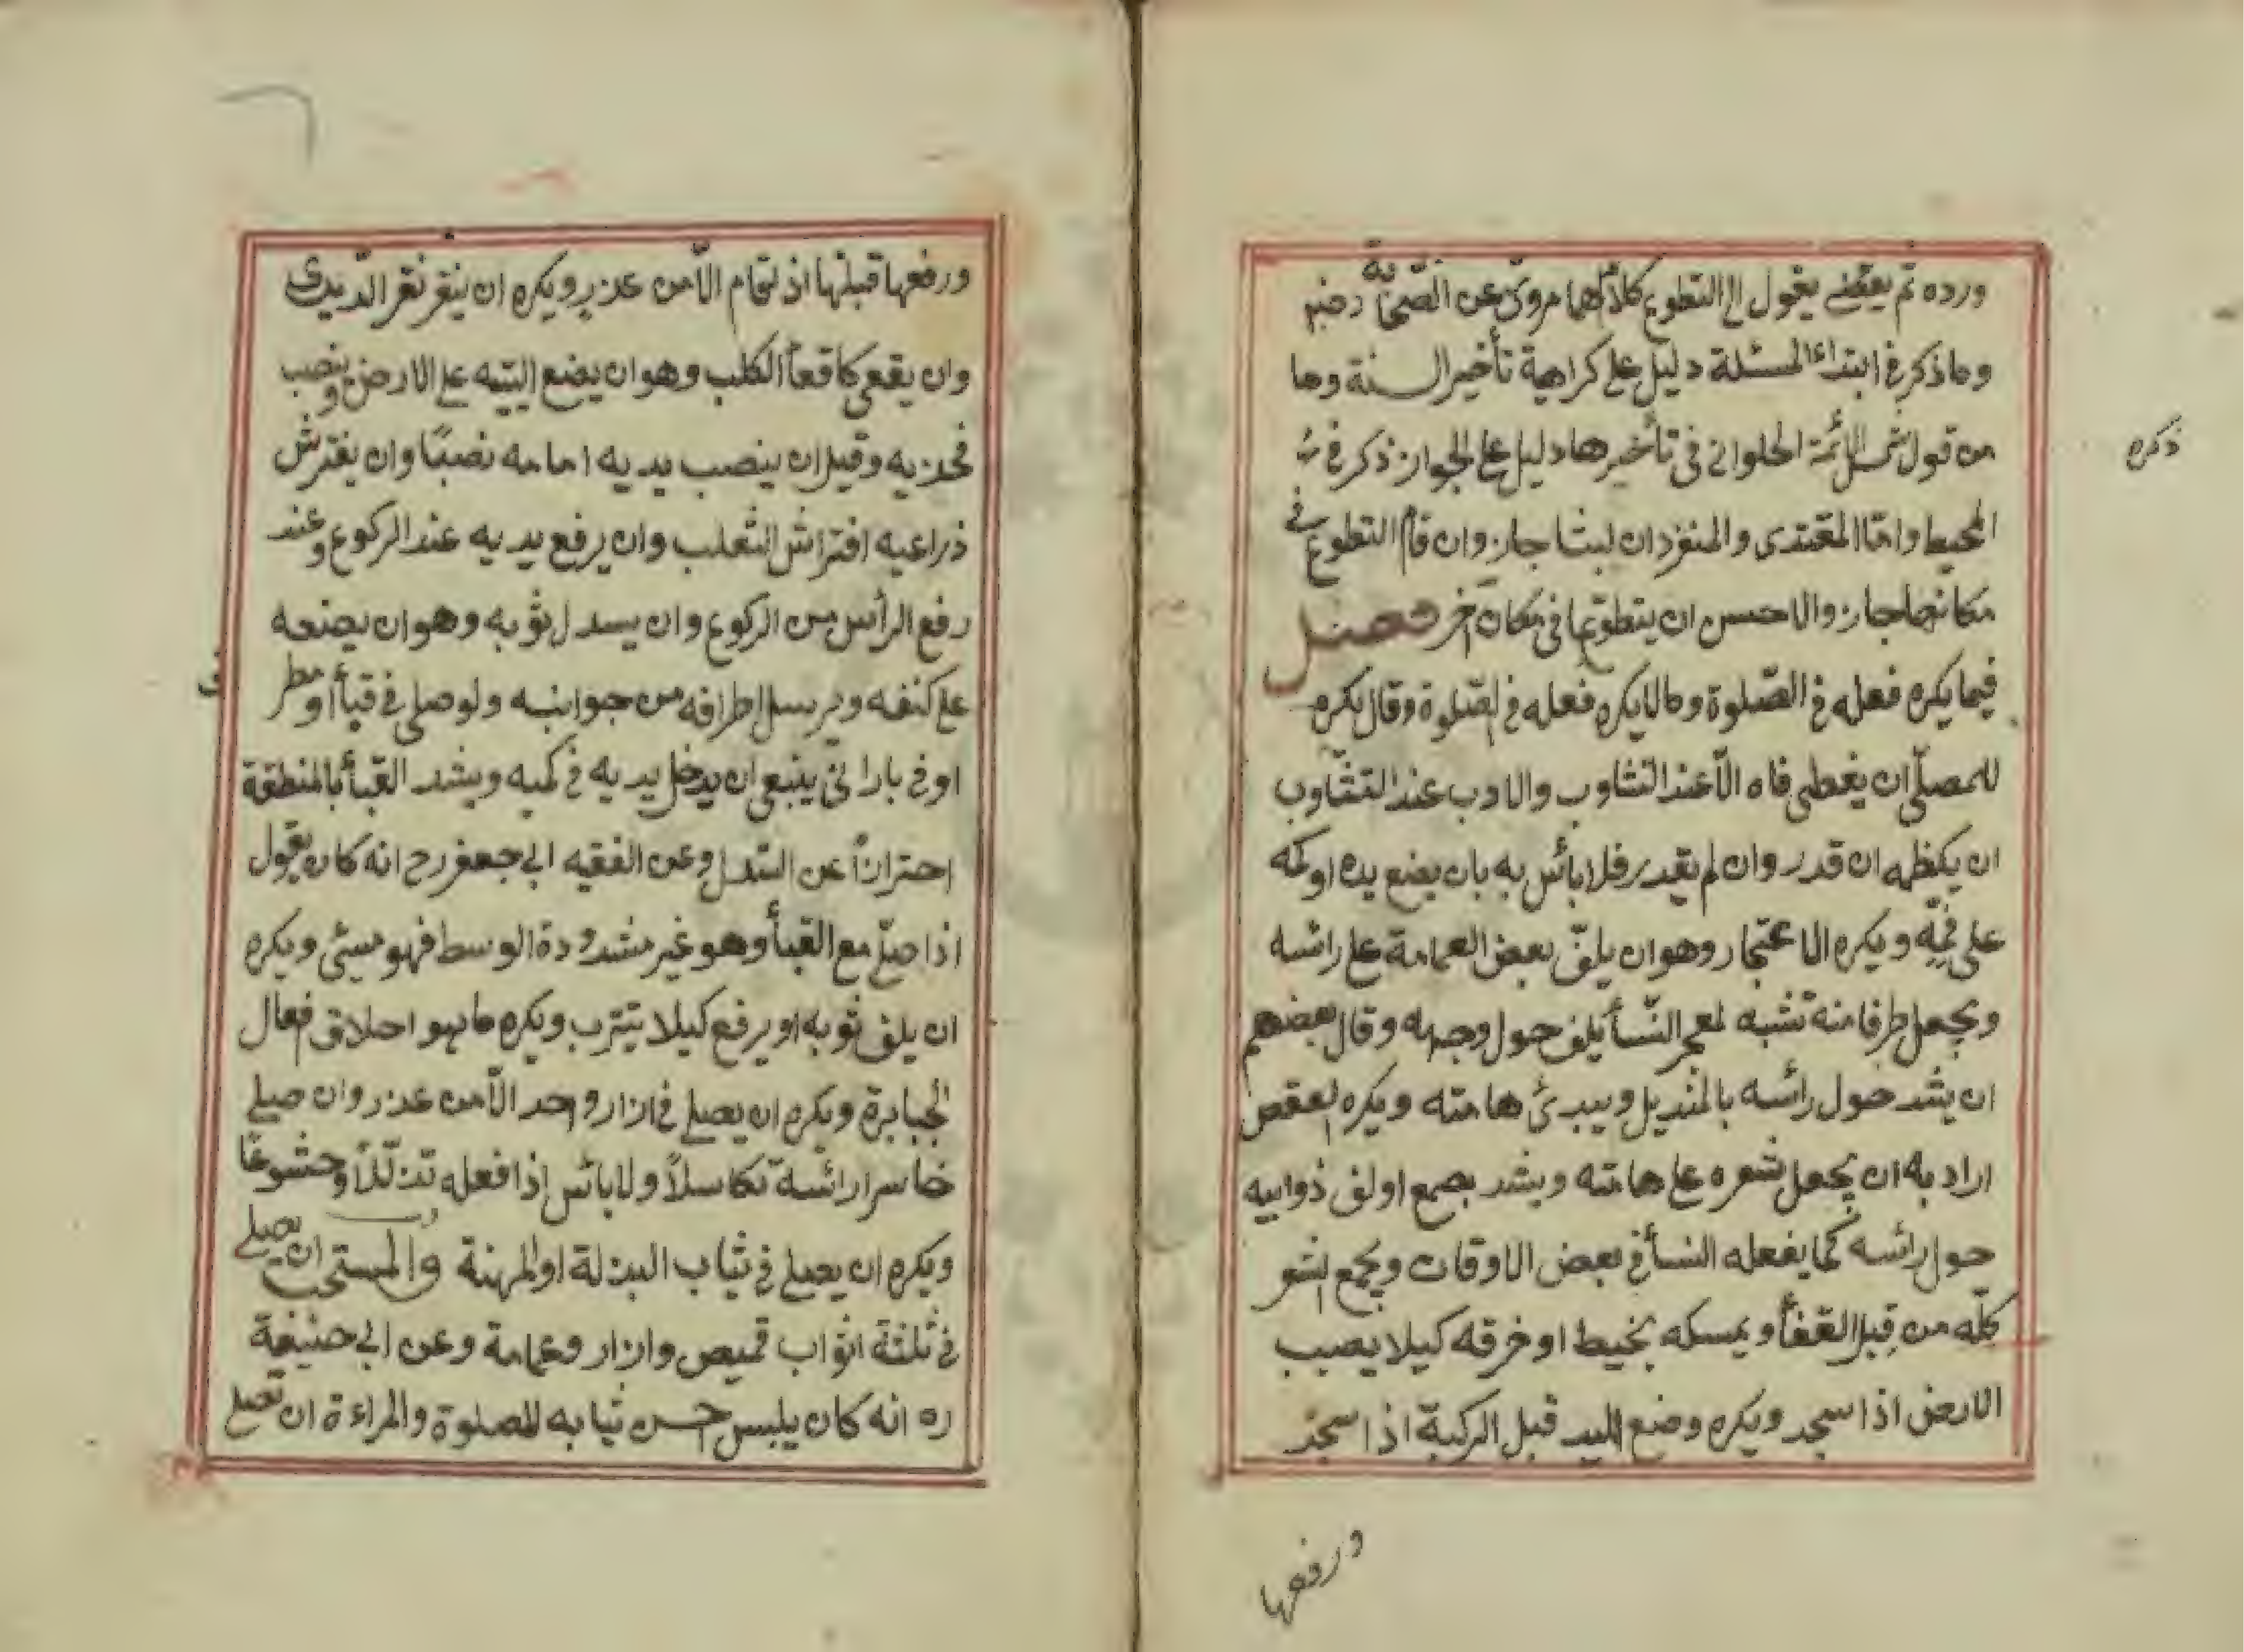 ورده ثم يقضي يقول الى التطوع كلاهما مروى عن الصحابة رضيهم
وما ذكر فى ابتداء المسئلة دليل على كراهية تأخير السنة وما
من قول شمس الائمة الحلوانى فى تأخيرها دليل على الجواز ذكر فى
ذكره
المحيط وامّا المقتدى والمنفردان لبثا جاز وان قام التطوع فى
مكانهما جاز والاحسن ان يتطوعا فى مكان آخر فصل
فيما يكره فعله فى الصّلوة وما لا يكره فعله فى الصّلوة وقال يكره
للمصلّى ان يغطى فاه الّا عند التثاوب والادب عند التثّاوب
ان يكظمه ان قدر وان لم يقدر فلا بائس به بان يضع يده او كمه
على فمِّه ويكره الاعتجار وهو ان يلفّ بعض العمامة على رائسه
ويجعل طرفا منه تشبه لمعجر النّسأ يلف حول وجهه وقال بعضهم
ان يشد حول رائسه بالمنديل ويبدئ هامته ويكره العقص
اراد به ان يجعل شعره على هامته ويشد بصمع او لف ذوابيه
حول رائسه كما يفعله النسأ فى بعض الاوقات ويجمع الشعر
كلّه من قِبل القفأ ويمسكه بخيط او خرقه كيلا يصب
الارض اذا سجد ويكره وضع اليد قبل الركبة اذا سجد
ورفعها
ورفعها قبلها اذ تمام الّا من عذر ويكره ان ينقر نقر الدّيدى
وان يقعى كاقعأ الكلب وهو ان يضع اليتيه على الارض وينصب
فخذيه وقيل ان ينصب يديه امامه نصبًا وان يفترش
ذراعيه افتراش الثعلب وان يرفع يديه عند الركوع وعند
رفع الرأس من الركوع وان يسدل ثوبه وهو ان يضعه
على كتفه ويرسل اطرافه من جوانبه ولو صلى فى قبأ او مطر
او فى بارانى ينبغى ان يدخل يديه فى كميه ويشد القبأ بالمنطقة
احترازًا عن السّدل وعن الفقيه ابى جعفر رح انه كان يقول
اذا صلّى مع القبأ وهو غير مشدودة الوسط فهو مسئى ويكره
ان يلف ثوبه او يرفع كيلا يتترب ويكره ما هو اخلاق فعال
الجبابرة ويكره ان يصلى فى ازار واحد الّا من عذر وان صلى
خاسرا رائسه تكاسلاً ولا بائس اذا فعله تذلّلاً وخشوعًا
ويكره ان يصلى فى ثياب البذلة او المهنة والمستحب ان يصلى
فى ثلثة اثواب قميص وازار وعمامة وعن ابى حنيفة
ره انه كان يلبس احسن ثيابه للصلوة والمراءة ان تصلى